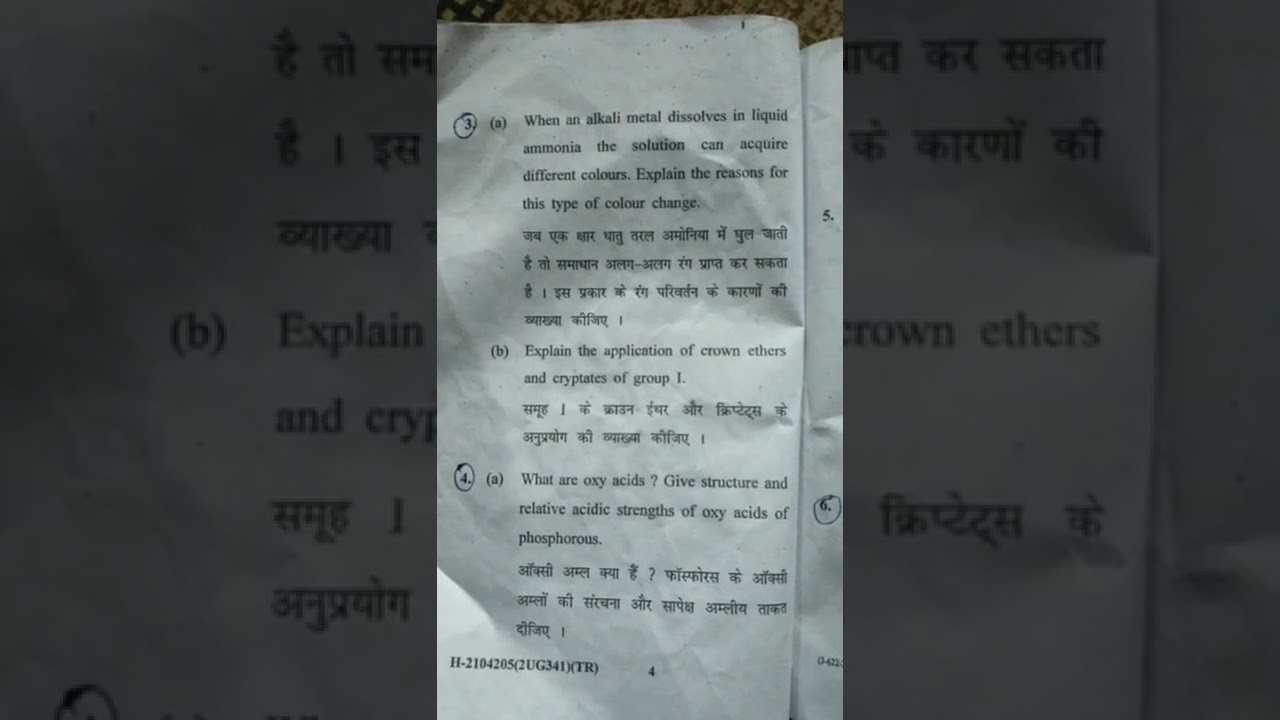 है तो सम
है । इस
व्याख्या
(b) Explain
and cryp
समूह I
अनुप्रयोग
3. (a) When an alkali metal dissolves in liquid
ammonia the solution can acquire
different colours. Explain the reasons for
this type of colour change.
जब एक क्षार धातु तरल अमोनिया में घुल जाती
है तो समाधान अलग-अलग रंग प्राप्त कर सकता
है । इस प्रकार के रंग परिवर्तन के कारणों की
व्याख्या कीजिए ।
(b) Explain the application of crown ethers
and cryptates of group I.
समूह I के क्राउन ईथर और क्रिप्टेट्स के
अनुप्रयोग की व्याख्या कीजिए ।
4. (a) What are oxy acids ? Give structure and
relative acidic strengths of oxy acids of
phosphorous.
ऑक्सी अम्ल क्या हैं ? फॉस्फोरस के ऑक्सी
अम्लों की संरचना और सापेक्ष अम्लीय ताकत
दीजिए ।
H-2104205(2UG341)(TR) 4
5.
6.
प्राप्त कर सकता
के कारणों की
crown ethers
क्रिप्टेट्स के